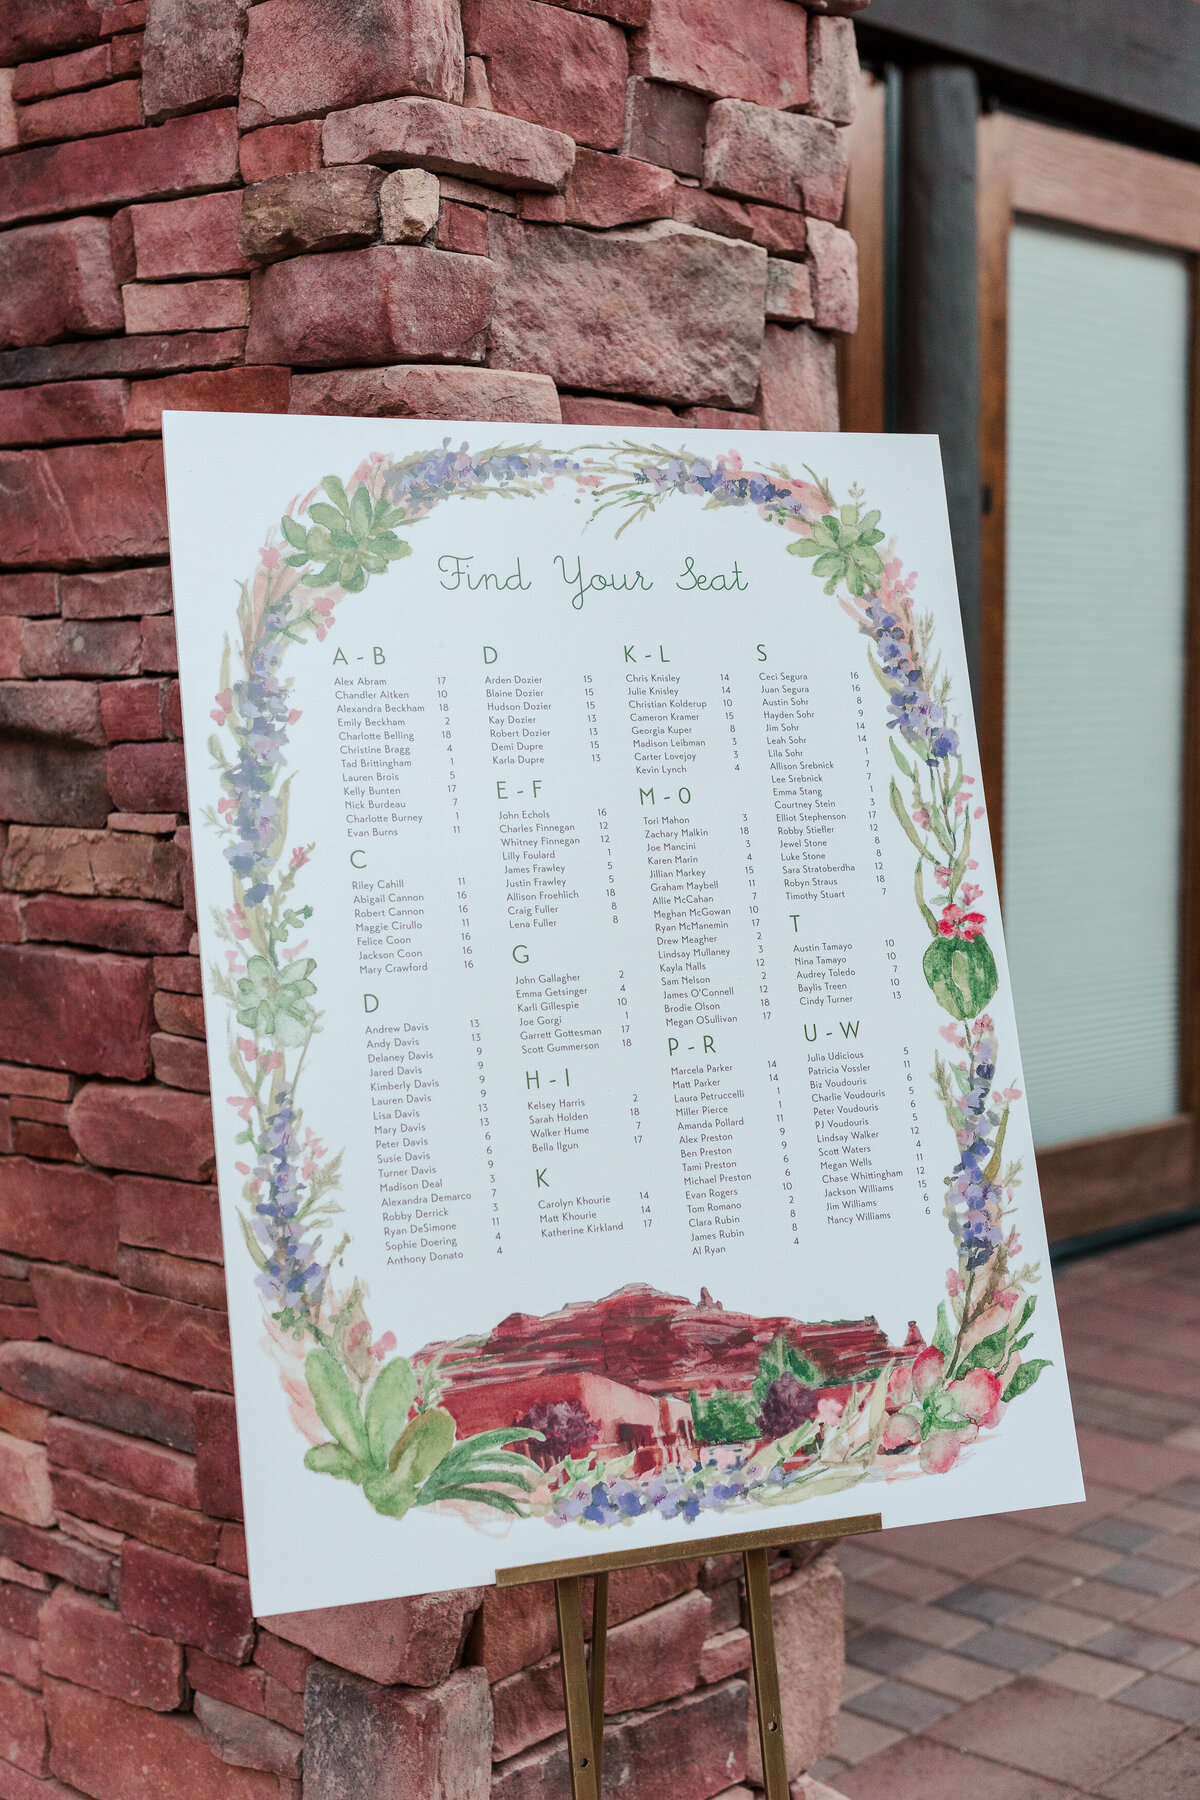 Find Your Seat
A - B
Alex Abram 17
Chandler Aitken 10
Alexandra Beckham 18
Emily Beckham 2
Charlotte Belling 18
Christine Bragg 4
Tad Brittingham 1
Lauren Brois 5
Kelly Bunten 17
Nick Burdeau 7
Charlotte Burney 1
Evan Burns 11
C
Riley Cahill 11
Abigail Cannon 16
Robert Cannon 16
Maggie Cirullo 11
Felice Coon 16
Jackson Coon 16
Mary Crawford 16
D
Andrew Davis 13
Andy Davis 13
Delaney Davis 9
Jared Davis 9
Kimberly Davis 9
Lauren Davis 9
Lisa Davis 13
Mary Davis 13
Peter Davis 6
Susie Davis 6
Turner Davis 9
Madison Deal 3
Alexandra Demarco 7
Robby Derrick 3
Ryan DeSimone 11
Sophie Doering 4
Anthony Donato 4
D
Arden Dozier 15
Blaine Dozier 15
Hudson Dozier 15
Kay Dozier 13
Robert Dozier 13
Demi Dupre 15
Karla Dupre 13
E - F
John Echols 16
Charles Finnegan 12
Whitney Finnegan 12
Lilly Foulard 1
James Frawley 5
Justin Frawley 5
Allison Froehlich 18
Craig Fuller 8
Lena Fuller 8
G
John Gallagher 2
Emma Getsinger 4
Karli Gillespie 10
Joe Gorgi 1
Garrett Gottesman 17
Scott Gummerson 18
H - I
Kelsey Harris 2
Sarah Holden 18
Walker Hume 7
Bella Ilgun 17
K
Carolyn Khourie 14
Matt Khourie 14
Katherine Kirkland 17
K - L
Chris Knisley 14
Julie Knisley 14
Christian Kolderup 10
Cameron Kramer 15
Georgia Kuper 8
Madison Leibman 3
Carter Lovejoy 3
Kevin Lynch 4
M - O
Tori Mahon 3
Zachary Malkin 18
Joe Mancini 3
Karen Marin 4
Jillian Markey 15
Graham Maybell 11
Allie McCahan 7
Meghan McGowan 10
Ryan McManemin 17
Drew Meagher 2
Lindsay Mullaney 3
Kayla Nalls 12
Sam Nelson 2
James O'Connell 12
Brodie Olson 18
Megan OSullivan 17
P - R
Marcela Parker 14
Matt Parker 14
Laura Petruccelli 1
Miller Pierce 1
Amanda Pollard 11
Alex Preston 9
Ben Preston 9
Tami Preston 6
Michael Preston 6
Evan Rogers 10
Tom Romano 2
Clara Rubin 8
James Rubin 8
Al Ryan 4
S
Ceci Segura 16
Juan Segura 16
Austin Sohr 8
Hayden Sohr 9
Jim Sohr 14
Leah Sohr 14
Lila Sohr 1
Allison Srebnick 7
Lee Srebnick 7
Emma Stang 1
Courtney Stein 3
Elliot Stephenson 17
Robby Stiefler 12
Jewel Stone 8
Luke Stone 8
Sara Stratoberdha 12
Robyn Straus 18
Timothy Stuart 7
T
Austin Tamayo 10
Nina Tamayo 10
Audrey Toledo 7
Baylis Treen 10
Cindy Turner 13
U - W
Julia Udicious 5
Patricia Vossler 11
Biz Voudouris 6
Charlie Voudouris 5
Peter Voudouris 6
PJ Voudouris 5
Lindsay Walker 12
Scott Waters 4
Megan Wells 11
Chase Whittingham 12
Jackson Williams 15
Jim Williams 6
Nancy Williams 6